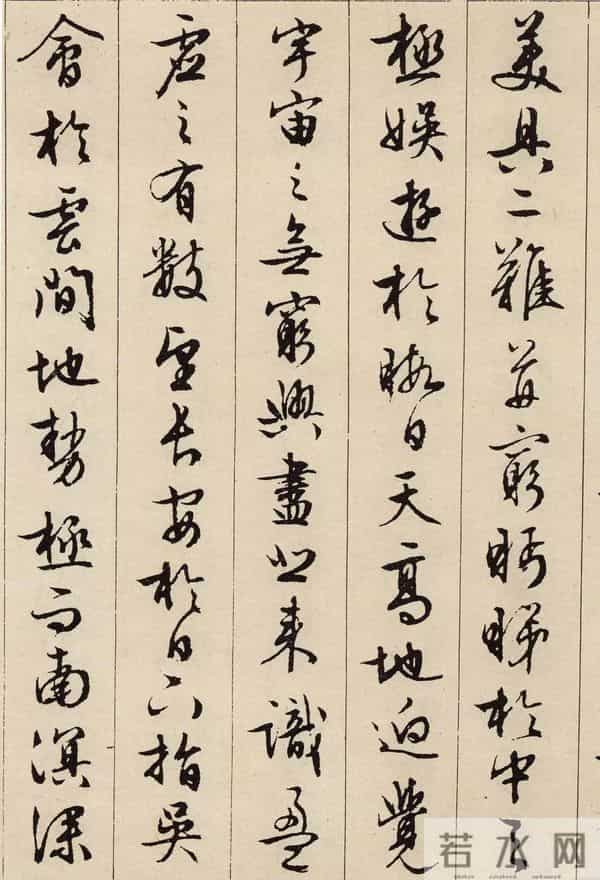 美具二難并窮眄睇於中天
極娛遊於暇日天高地迥覺
宇宙之無窮興盡悲來識盈
虛之有數望長安於日下指吳
會於雲間地勢極而南溟深
若水网